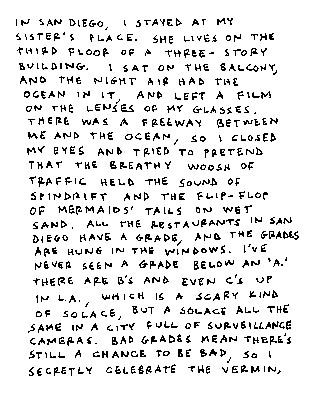 IN SAN DIEGO, I STAYED AT MY
SISTER'S PLACE. SHE LIVES ON THE
THIRD FLOOR OF A THREE-STORY
BUILDING. I SAT ON THE BALCONY,
AND THE NIGHT AIR HAD THE
OCEAN IN IT, AND LEFT A FILM
ON THE LENSES OF MY GLASSES.
THERE WAS A FREEWAY BETWEEN
ME AND THE OCEAN, SO I CLOSED
MY EYES AND TRIED TO PRETEND
THAT THE BREATHY WOOSH OF
TRAFFIC HELD THE SOUND OF
SPINDRIFT AND THE FLIP-FLOP
OF MERMAIDS' TAILS ON WET
SAND. ALL THE RESTAURANTS IN SAN
DIEGO HAVE A GRADE, AND THE GRADES
ARE HUNG IN THE WINDOWS. I'VE
NEVER SEEN A GRADE BELOW AN 'A.'
THERE ARE B'S AND EVEN C'S UP
IN L.A., WHICH IS A SCARY KIND
OF SOLACE, BUT A SOLACE ALL THE
SAME IN A CITY FULL OF SURVEILLANCE
CAMERAS. BAD GRADES MEAN THERE'S
STILL A CHANCE TO BE BAD, SO I
SECRETLY CELEBRATE THE VERMIN,